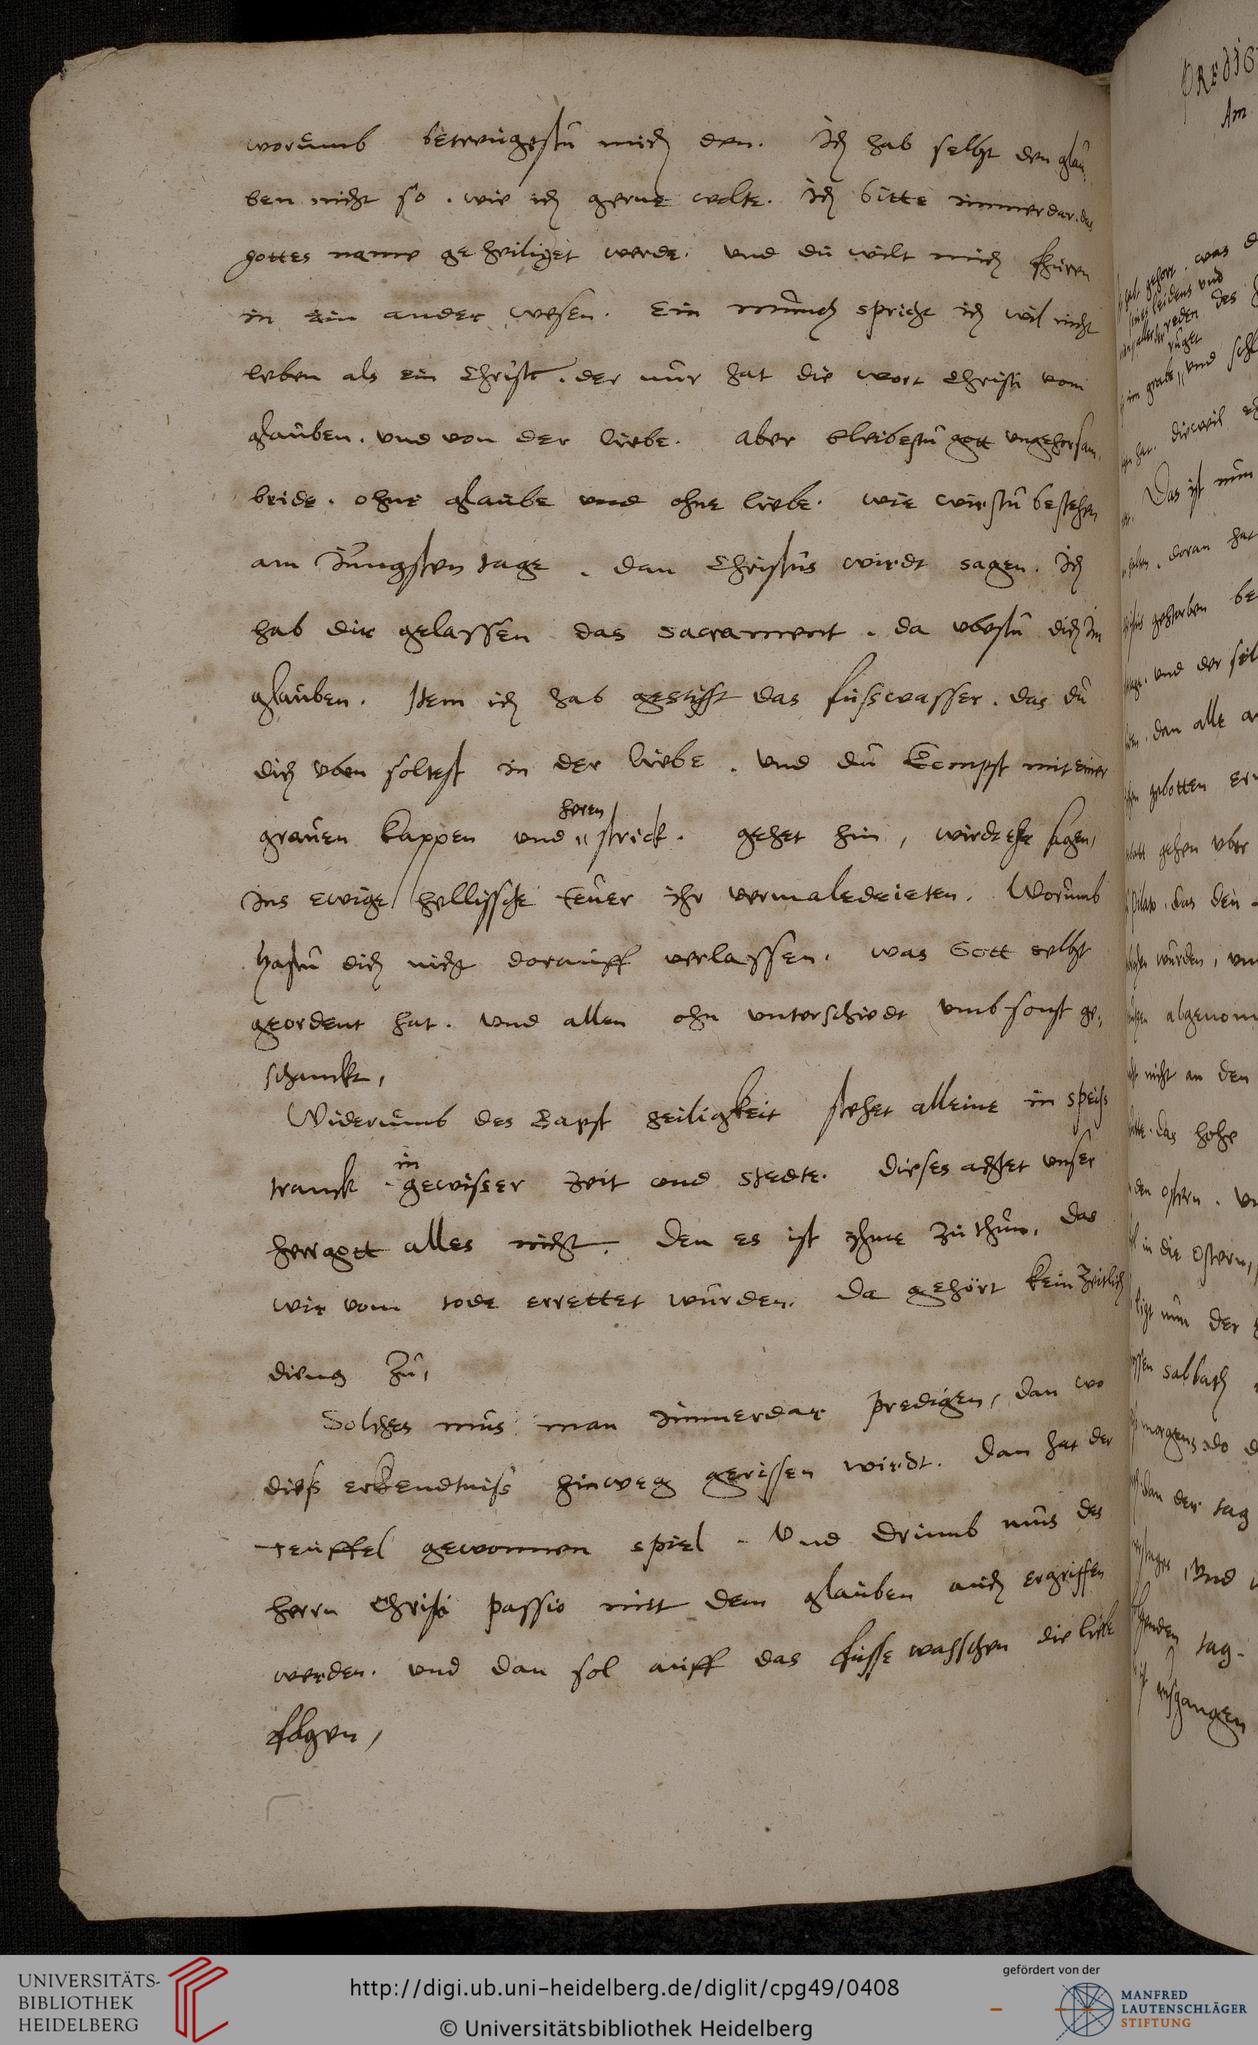 worumb betreugestu mich den. Ich hab selbst den glau-
ben nicht so. wie ich gerne wolte. Ich bitte immerdar. das
gottes name geheiliget werde. und du wilt mich fhüren
in ein ander wesen. Ein munch spricht ich wil nicht
leben als ein Christ. der nur hat die wort Christi vom
glauben. und von der liebe. Aber bleibestu gott ungehorsam,
beide. ohne glaube und ohne liebe. wie wirstu bestehen
am Jungsten tage. dan Christus wirdt sagen. Ich
hab dir gelassen das sacrament. da ubestu dich im
glauben. Item ich hab gestifft das fusswasser. das du
dich uben soltest in der liebe. und du kompst mit einer
grauen kappen und heren strick. gehet hin, wirdt ehr sagen,
ins ewige hellissche feuer ihr vermaledeieten. Worumb
hastu dich nicht dorauff verlassen. was Gott selbst
geordent hat. und allen ohn unterschiedt umbsonst ge-
schenckt,
Widerumb des Bapst heiligkeit stehet alleine in speiss
tranck. in gewisser zeit und stedte. dieses achtet unser
herrgott alles nicht. den es ist ihme zu thun, das
wir vom tode errettet wurden. da gehört kein zeitlich
dieng zu,
Solches mus man immerdar predigen, dan wo
diess erkendtniss hinweg gerissen wirdt. dan hat der
teuffel gewonnen spiel. Und drumb mus des
herrn Christi passio mitt dem glauben auch ergriffen
werden. und dan sol auff das fusse wasschen die liebe
folgen,
PREDIG
Am
gehört. was
leidens und
reden des
im grabe, und
hat. dieweil
Das ist nun
doran hat
gestorben
und der
dan alle
gebotten
gehen uber
Pilato. das den
wurden, und
abgenom
nicht an den
das hohe
den ostern.
in die Ostern,
ligt nun der
sabbath
morgens do
dan der tag
und
tag.
http://digi.ub.uni-heidelberg.de/diglit/cpg49/0408
© Universitätsbibliothek Heidelberg
UNIVERSITÄTS-
BIBLIOTHEK
HEIDELBERG
gefördert von der
MANFRED
LAUTENSCHLÄGER
STIFTUNG